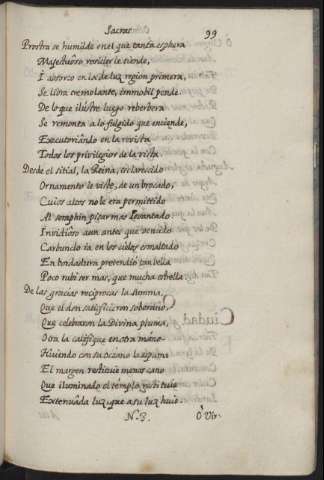 Sacras 99
Prostra se humilde en el que tanta esphera
Magestuoso rosicler se tiende,
I absorto en la de luz region primera,
Se libra tremolante, immobil pende
De lo que ilustre luego reberbera
Se remonta a lo fulgido que enciende,
Executoriando en la revista
Todos los privilegios de la vista.
Desde el sitial, la Reina, esclarecido
Ornamento le viste, de un brocado,
Cuios altos no le era permitido
Al seraphin pisar mas levantado
Invidioso aun antes que vencido
Carbunclo ia en los cielos esmaltado
En bordadura pretendió tan bella
Poco rubi ser mas, que mucha estrella
De las gracias reciprocas la summa,
Que el don satisficieron soberano
Que celebraron la Divina pluma,
O con la califique en otra mano
Hiriendo con su Oceano la espuma
El margen restituie menos cano
Que iluminado el templo restituio
Extenuada luz, que a su luz huio
N.3. O Vir-
Ciudad